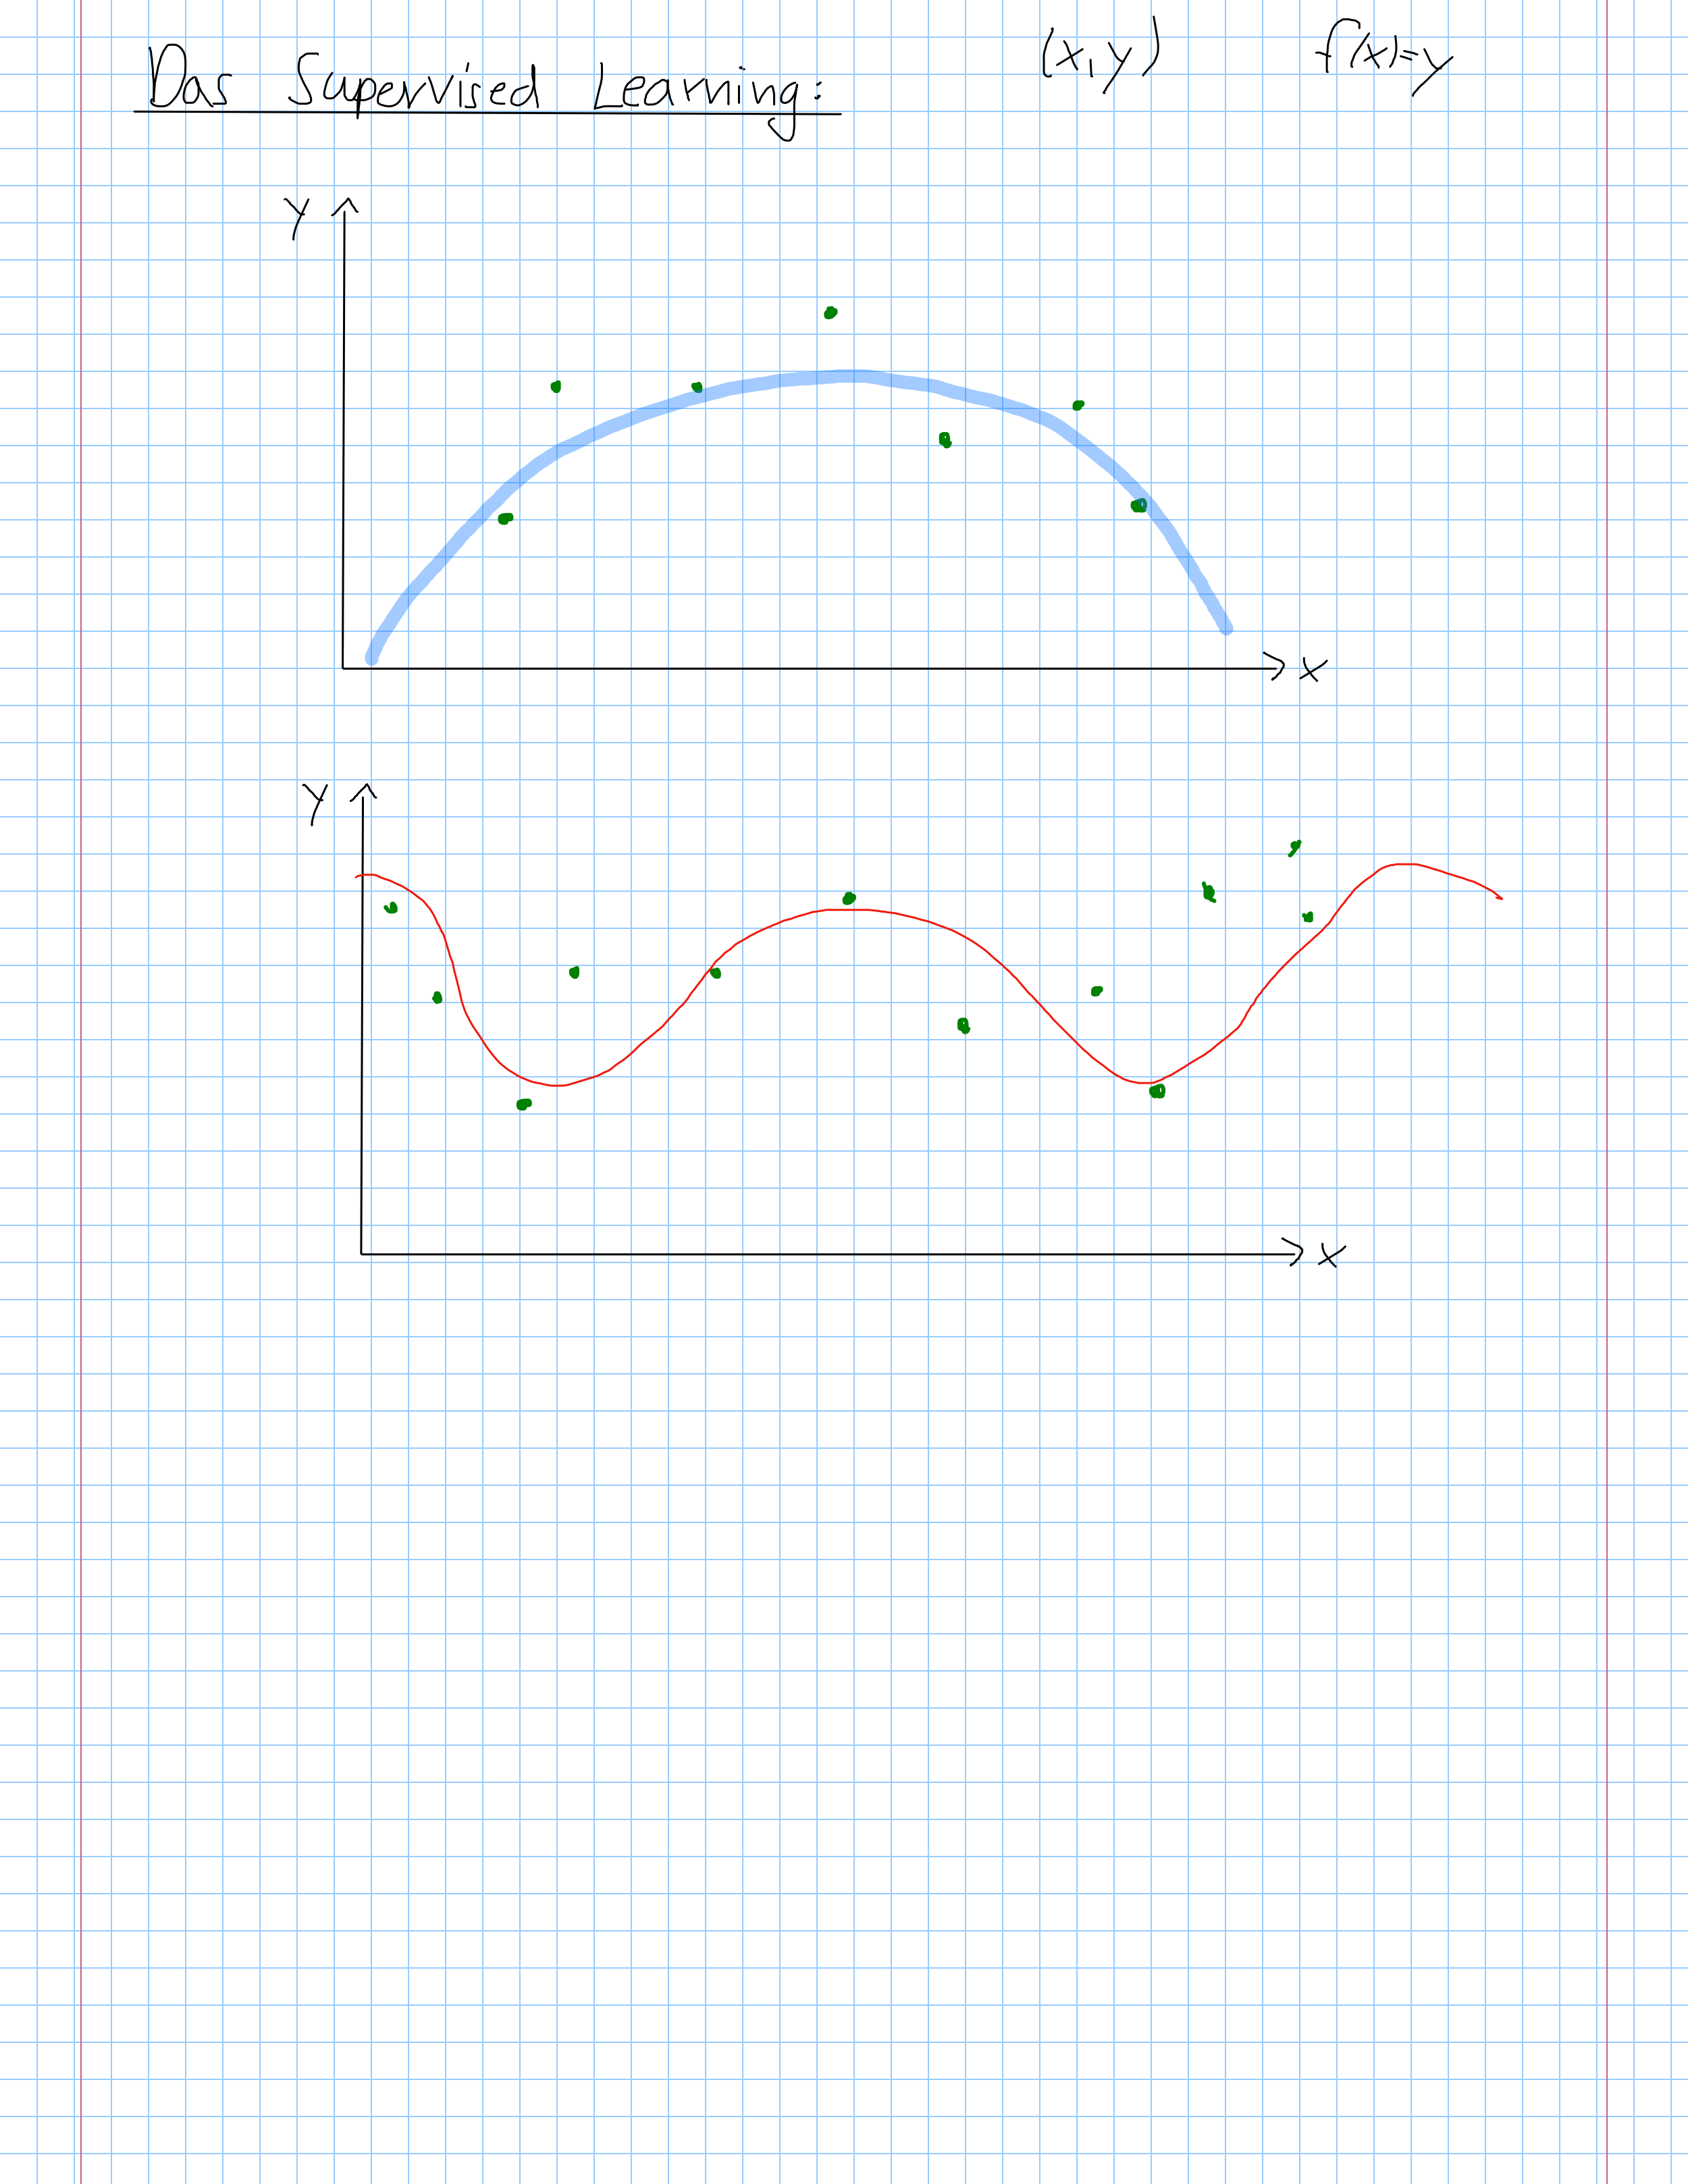 Das Supervised Learning: (x,y) f(x)=y
y
x
y
x